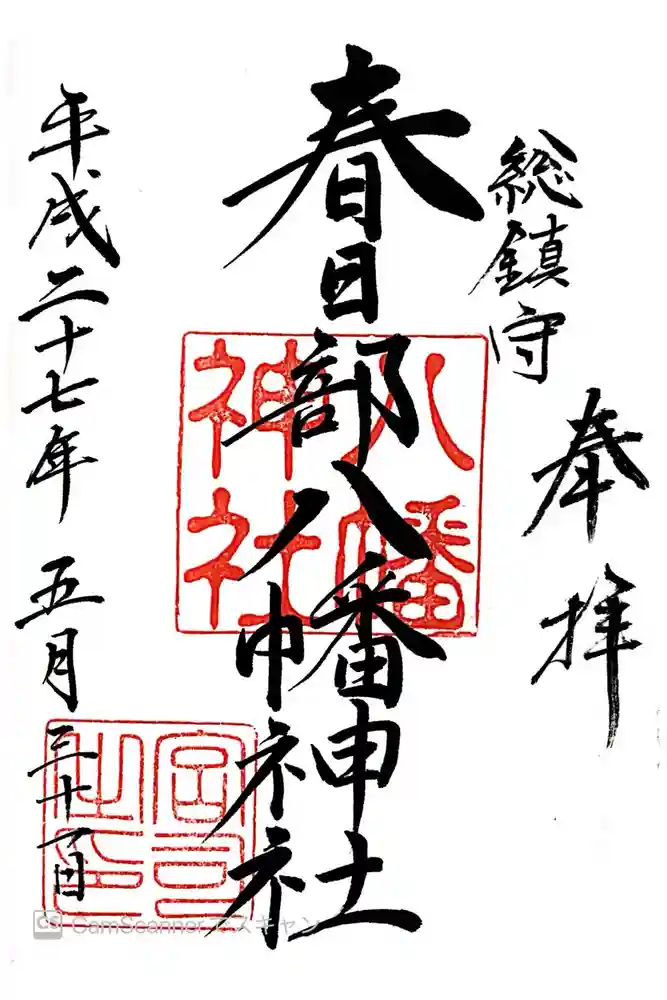 奉拝
総鎮守
春日部八幡神社
八幡
神社
平成二十七年 五月 三十一日
宮司
之印
CS CamScanner でスキャン